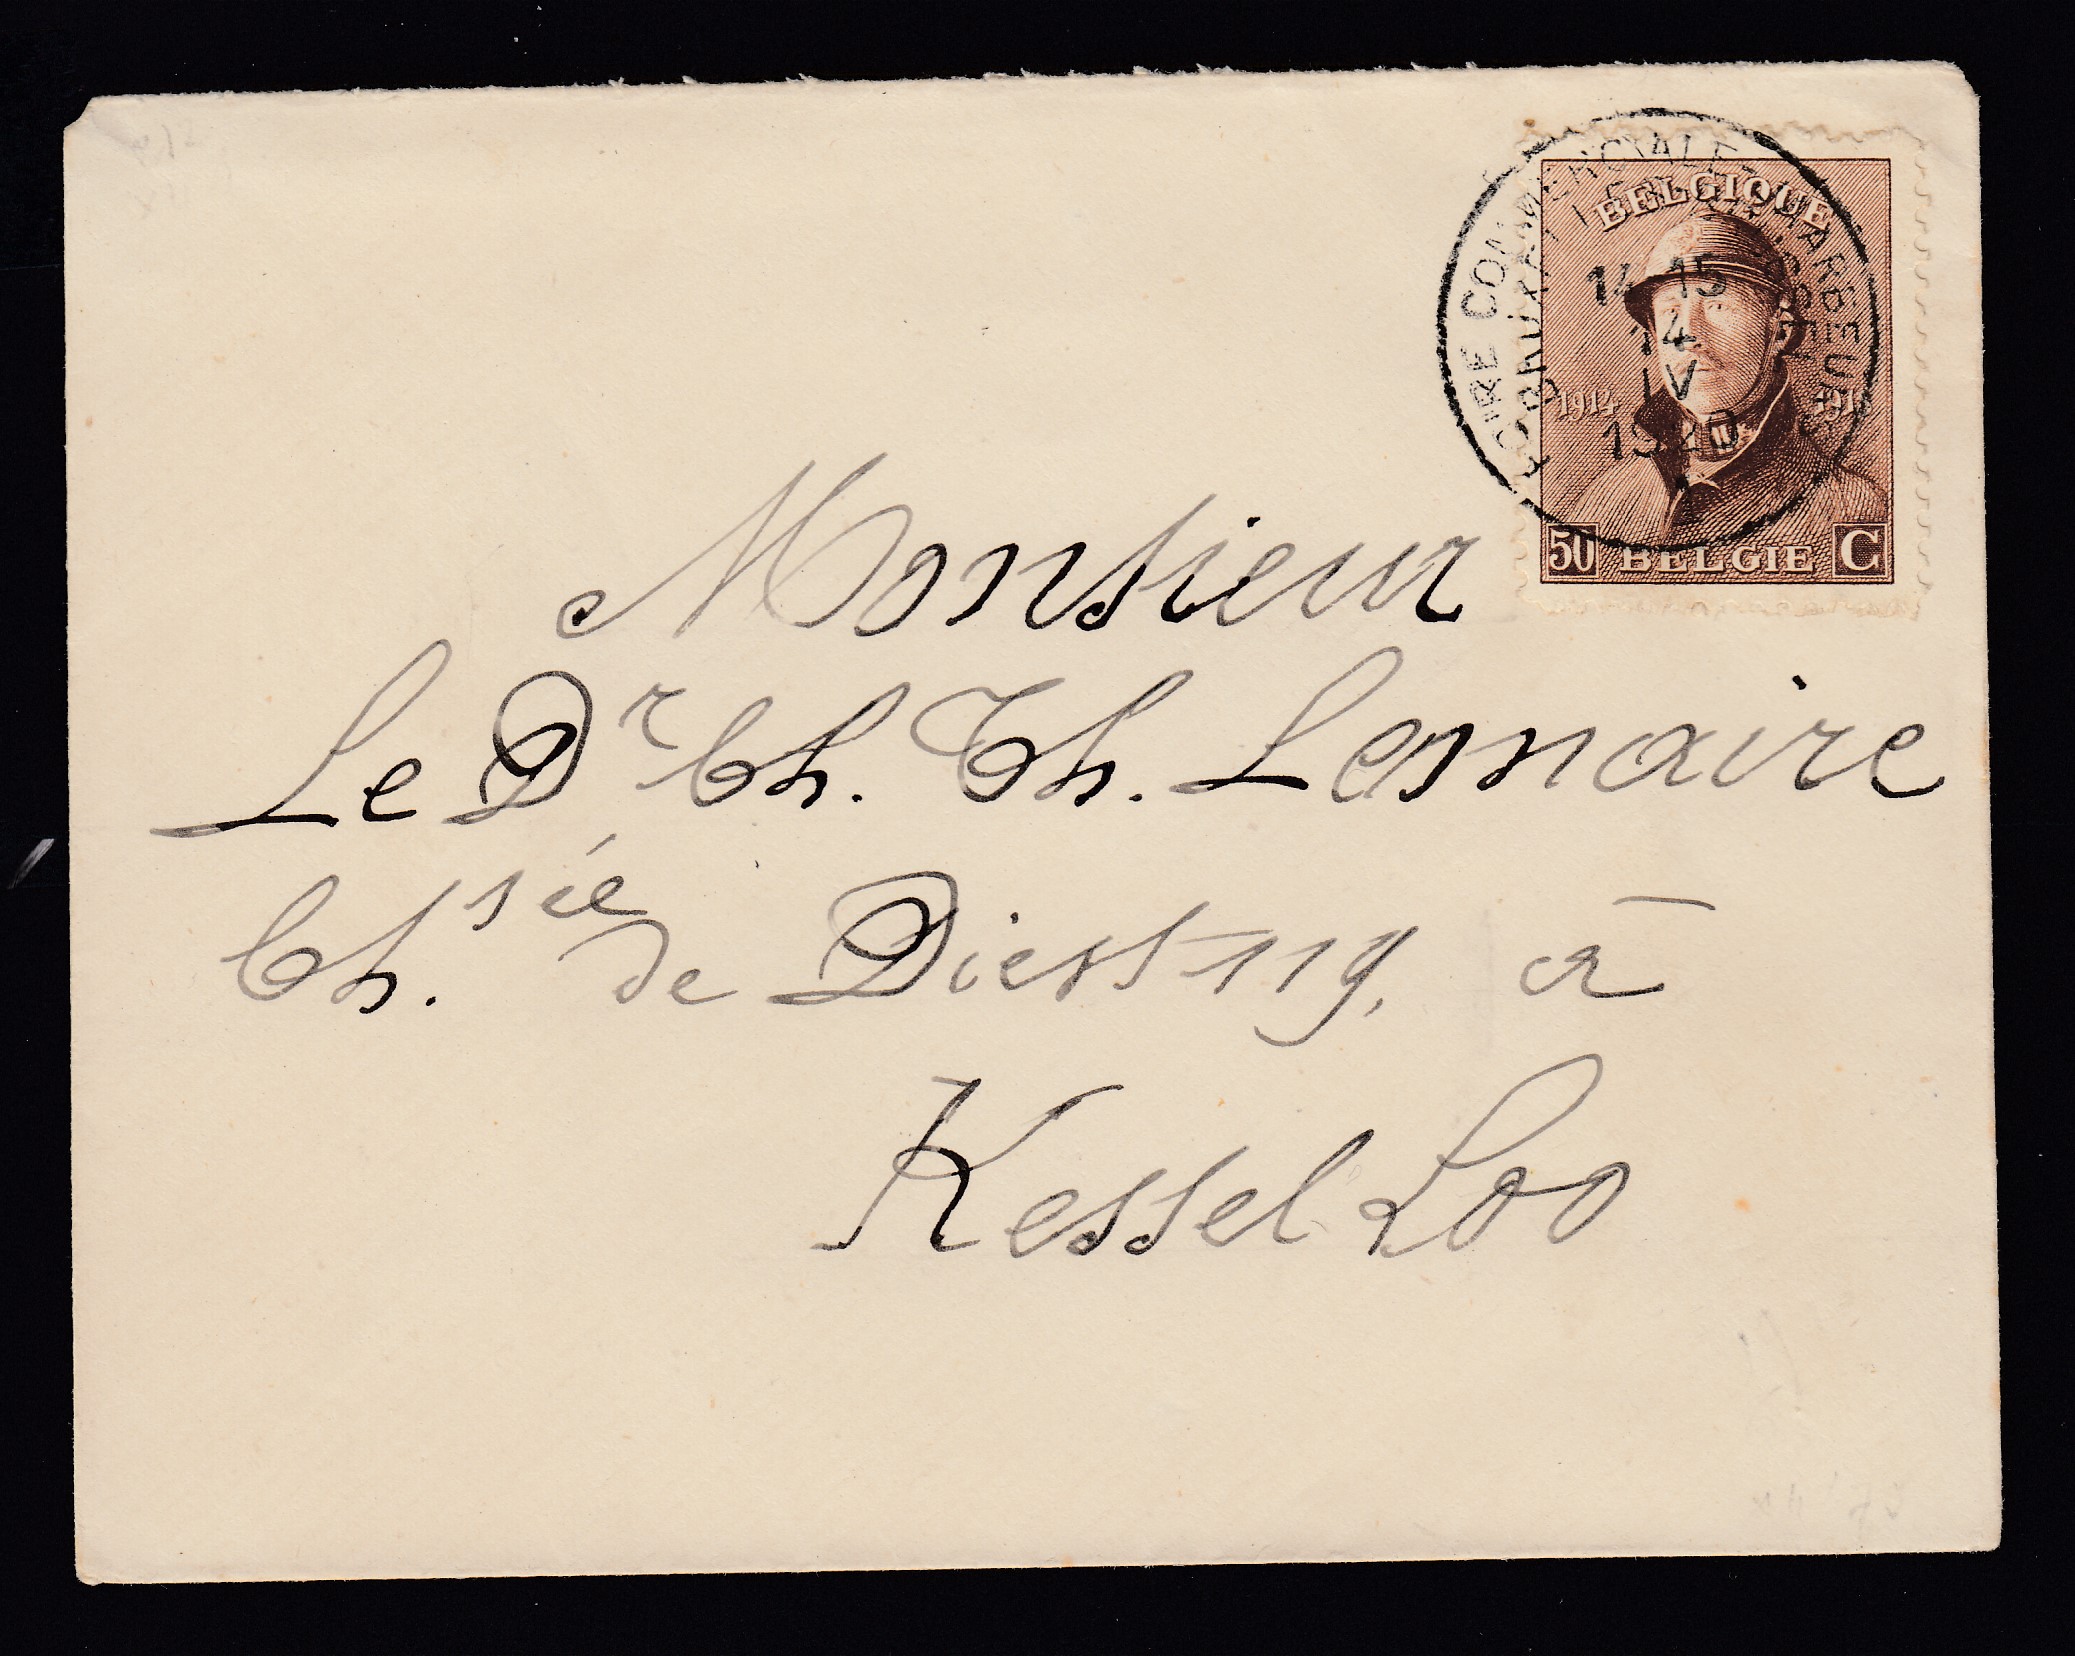 FOIRE COMMERCIALE - HANDELSFOOR
BRUXELLES BRUSSEL
14-15
14
IV
1920
BELGIQUE
1914 1918
50 BELGIE C
Monsieur
Le Dr Ch. Th. Lemaire
Ch.sée de Diest 119, à
Kessel Loo